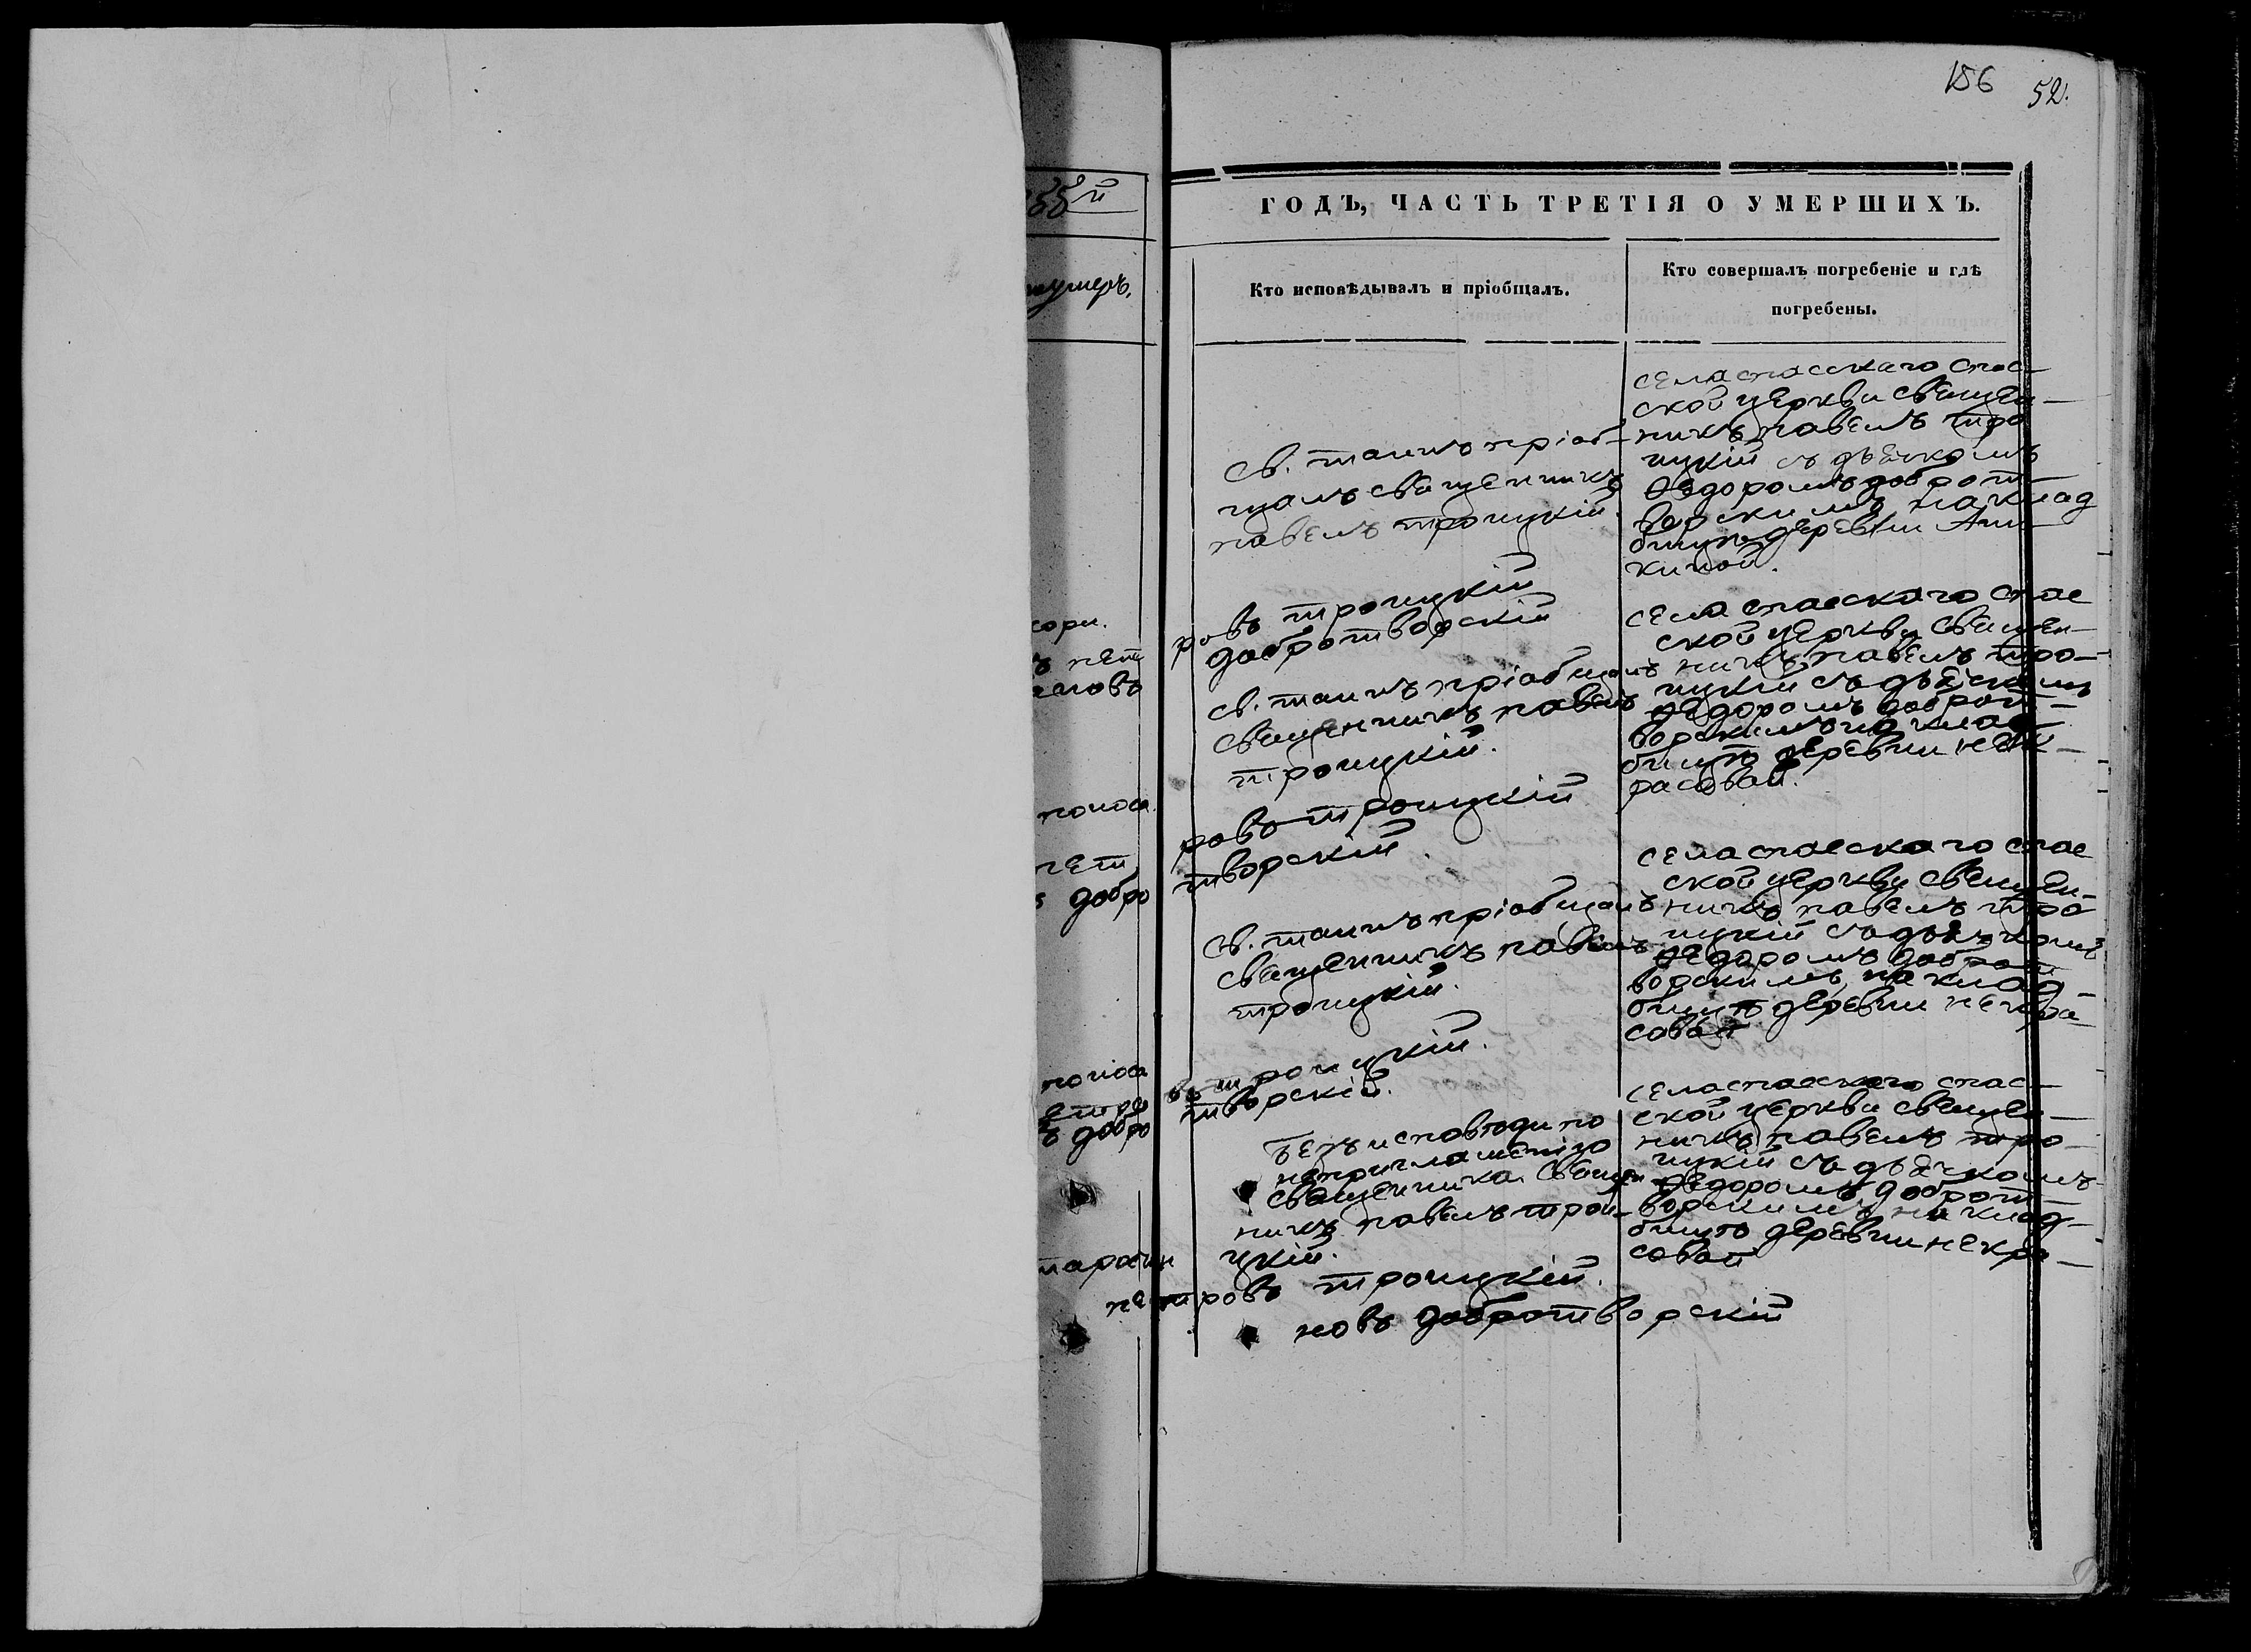 156 52.
ГОДЪ, ЧАСТЬ ТРЕТІЯ О УМЕРШИХЪ.
умеръ.
Кто исповѣдывалъ и пріобщалъ.
Кто совершалъ погребеніе и гдѣ
погребены.
Св. таинъ пріоб-
щалъ священникъ
павелъ троицкій.
села спасскаго спас-
ской церкви священ-
никъ павелъ тро
ицкій съ дьячкомъ
Ѳедоромъ доброт-
ворскимъ на клад
бищѣ деревни Ани-
киной.
ровъ троицкій
добротворскій
св. таинъ пріобщалъ
священникъ павелъ
троицкій.
села спасскаго спас
ской церкви священ-
никъ павелъ тро-
ицкій съ дьячкомъ
Ѳедоромъ доброт-
ворскимъ на клад-
бищѣ деревни нек-
расовой.
ровъ троицкій
творскій.
добро
св. таинъ пріобщалъ
священникъ павелъ
троицкій.
села спасскаго спас
ской церкви священ-
никъ павелъ тро
ицкій съ дьячкомъ
Ѳедоромъ доброт
ворскимъ на клад
бищѣ деревни некра-
совой
въ троицкій.
ъ добро
творскій.
Безъ исповѣди по
неприглашенію
священника. Священ
никъ павелъ трои-
цкій.
села спасскаго спас-
ской церкви священ-
никъ павелъ тро-
ицкій съ дьячкомъ
Ѳедоромъ доброт-
ворскимъ на клад-
бищѣ деревни некра-
совой
петровъ троицкій.
новъ добротворскій